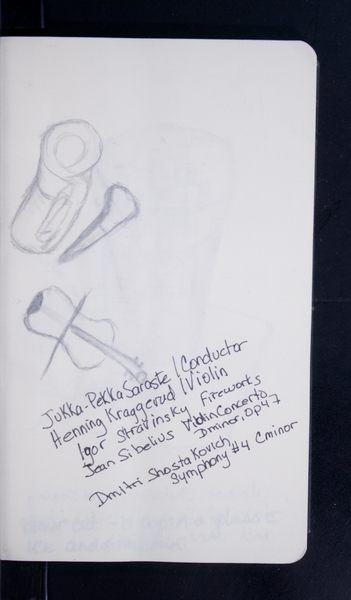 Jukka-Pekka Saraste / Conductor
Henning Kraggerud / Violin
Igor Stravinsky Fireworks
Jean Sibelius Violin Concerto
D minor, OP47
Dmitri Shostakovich
Symphony #4 C minor